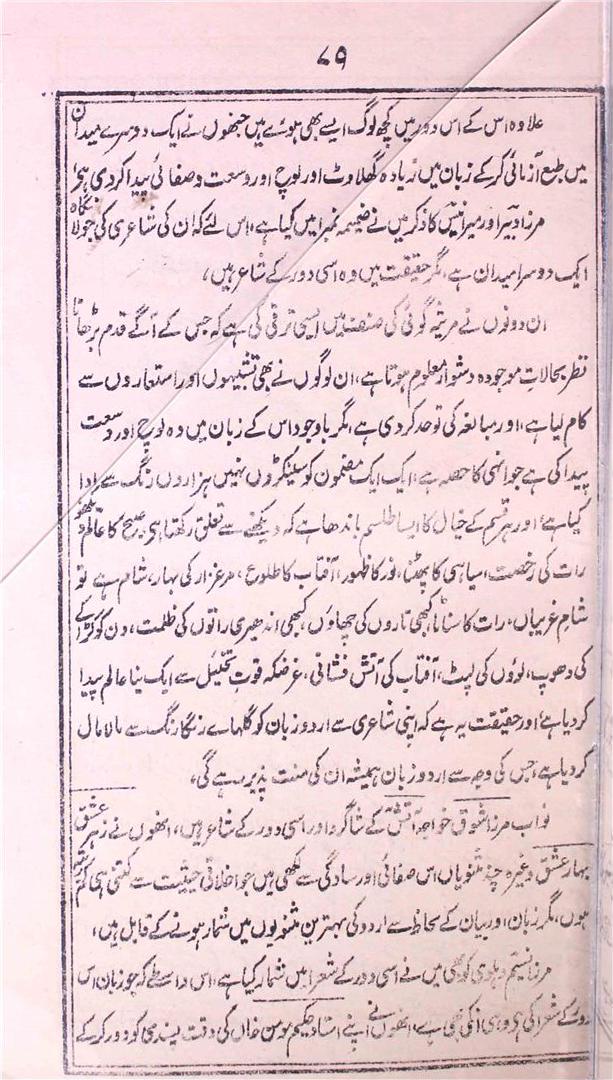 ۷۹
علاوہ اس کے اس دور میں کچھ لوگ ایسے بھی ہوئے ہیں جنھوں نے ایک دوسرے میدان
میں طبع آزمائی کرکے زبان میں زیادہ گھلاوٹ اور لوچ اور وسعت و صفائی پیدا کردی ہے،
مرزا دبیر اور میر انیس کا ذکر میں نے ضمیمہ نمبر ۱ میں کیا ہے، اس لئے کہ ان کی شاعری کی جولانگاہ
ایک دوسرا میدان ہے، مگر حقیقت میں وہ اسی دور کے شاعر ہیں،
ان دونوں نے مرثیہ گوئی کی صنف میں ایسی ترقی کی ہے کہ جس کے آگے قدم بڑھانا
نظر بحالات موجودہ دشوار معلوم ہوتا ہے، ان لوگوں نے بھی تشبیہوں اور استعاروں سے
کام لیا ہے، اور مبالغہ کی تو حد کردی ہے، مگر باوجود اس کے زبان میں وہ لوچ اور وسعت
پیدا کی ہے جو انہی کا حصہ ہے، ایک ایک مضمون کو سینکڑوں نہیں ہزاروں رنگ سے ادا
کیا ہے، اور ہر قسم کے خیال کا ایسا طلسم باندھا ہے کہ دیکھنے سے تعلق رکھتا ہی صبح کا عالم دیکھو
رات کی رخصت، سیاہی کا پھٹنا، نور کا ظہور، آفتاب کا طلوع، مرغزار کی بہار، شام ہے تو
شام غریباں، رات کا سناٹا، کبھی تاروں کی چھاؤں، کبھی اندھیری راتوں کی ظلمت، دن کو کڑاکے
کی دھوپ، لوؤں کی لپٹ، آفتاب کی آتش فشانی، غرضکہ قوت تخئیل سے ایک نیا عالم پیدا
کردیا ہے، اور حقیقت یہ ہے کہ اپنی شاعری سے اردو زبان کو گلہائے رنگارنگ سے مالا مال
کردیا ہے، جس کی وجہ سے اردو زبان ہمیشہ ان کی منت پذیر رہے گی،
نواب مرزا شوق خواجہ آتش کے شاگرد اور اسی دور کے شاعر ہیں، انھوں نے زہر عشق
بہار عشق وغیرہ چند مثنویاں اس صفائی اور سادگی سے لکھی ہیں جو اخلاقی حیثیت سے کتنی ہی کم رتبہ
ہوں، مگر زبان اور بیان کے لحاظ سے اردو کی بہترین مثنویوں میں شمار ہونے کے قابل ہیں،
مرزا نسیم دہلوی کو بھی میں نے اسی دور کے شعرا میں شمار کیا ہے، اس واسطے کہ جو زبان اس
دور کے شعرا کی ہی وہی انکی بھی ہے، انھوں نے اپنے استاد حکیم مومن خاں کی دقت پسندی کو دور کرکے